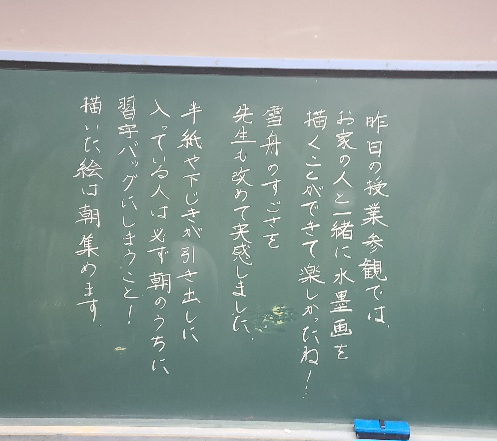 昨日の授業参観では、
お家の人と一緒に水墨画を
描くことができて楽しかったね!
雪舟のすごさを
先生も改めて実感しました。
半紙や下じきが引き出しに
入っている人は必ず朝のうちに
習字バッグにしまうこと!
描いた絵は朝集めます。